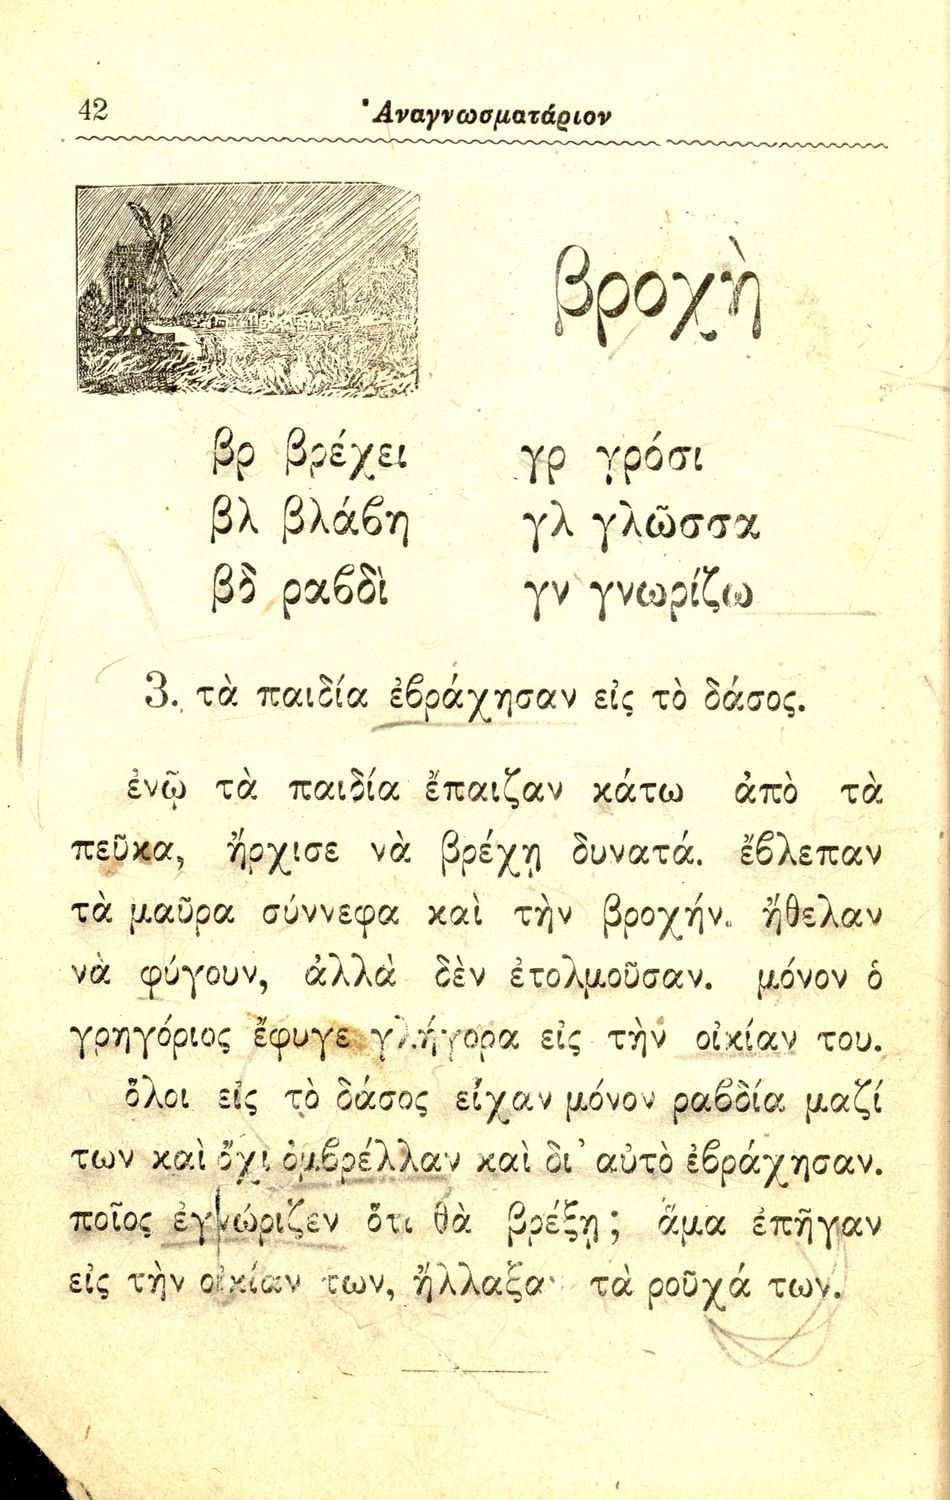 42
Ἀναγνωσματάριον
βροχὴ
βρ βρέχει
βλ βλάϐη
βδ ραϐδὶ
γρ γρόσι
γλ γλῶσσα
γν γνωρίζω
3. τὰ παιδία ἐϐράχησαν εἰς τὸ δάσος.
ἐνῷ τὰ παιδία ἔπαιζαν κάτω ἀπὸ τὰ
πεῦκα, ἤρχισε νὰ βρέχῃ δυνατά. ἔϐλεπαν
τὰ μαῦρα σύννεφα καὶ τὴν βροχήν. ἤθελαν
νὰ φύγουν, ἀλλὰ δὲν ἐτολμοῦσαν. μόνον ὁ
γρηγόριος ἔφυγε γλήγορα εἰς τὴν οἰκίαν του.
ὅλοι εἰς τὸ δάσος εἶχαν μόνον ραϐδία μαζί
των καὶ ὄχι ὀμϐρέλλαν καὶ δι' αὐτὸ ἐϐράχησαν.
ποῖος ἐγνώριζεν ὅτι θὰ βρέξῃ; ἅμα ἐπῆγαν
εἰς τὴν οἰκίαν των, ἤλλαξαν τὰ ροῦχά των.